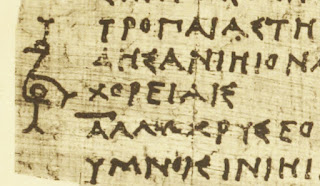 ΤΡΟΠΑΙΑΣΤΗ
ΔΗΣΑΝΙΗΙΟΝΑ
ΧΟΡΕΙΑΙΣ
ΑΛΛΩΧΡΥΣΕΟ
ΥΜΝΟΙΣΙΝΙΗΙ